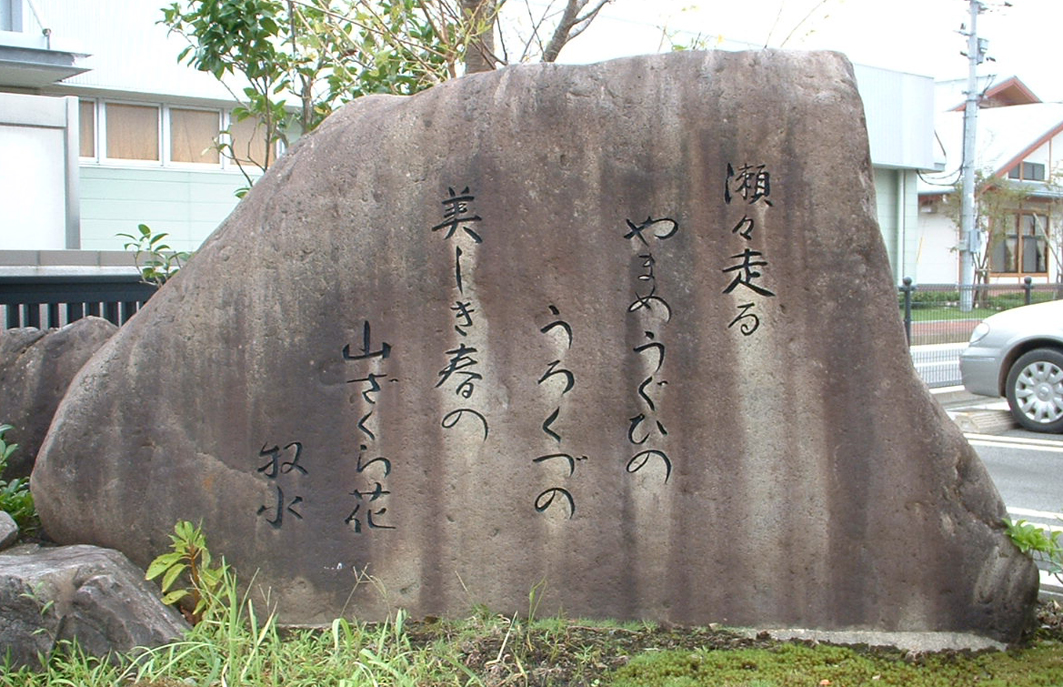 瀬々走る
やまめうぐひの
うろくづの
美しき春の
山ざくら花
牧水